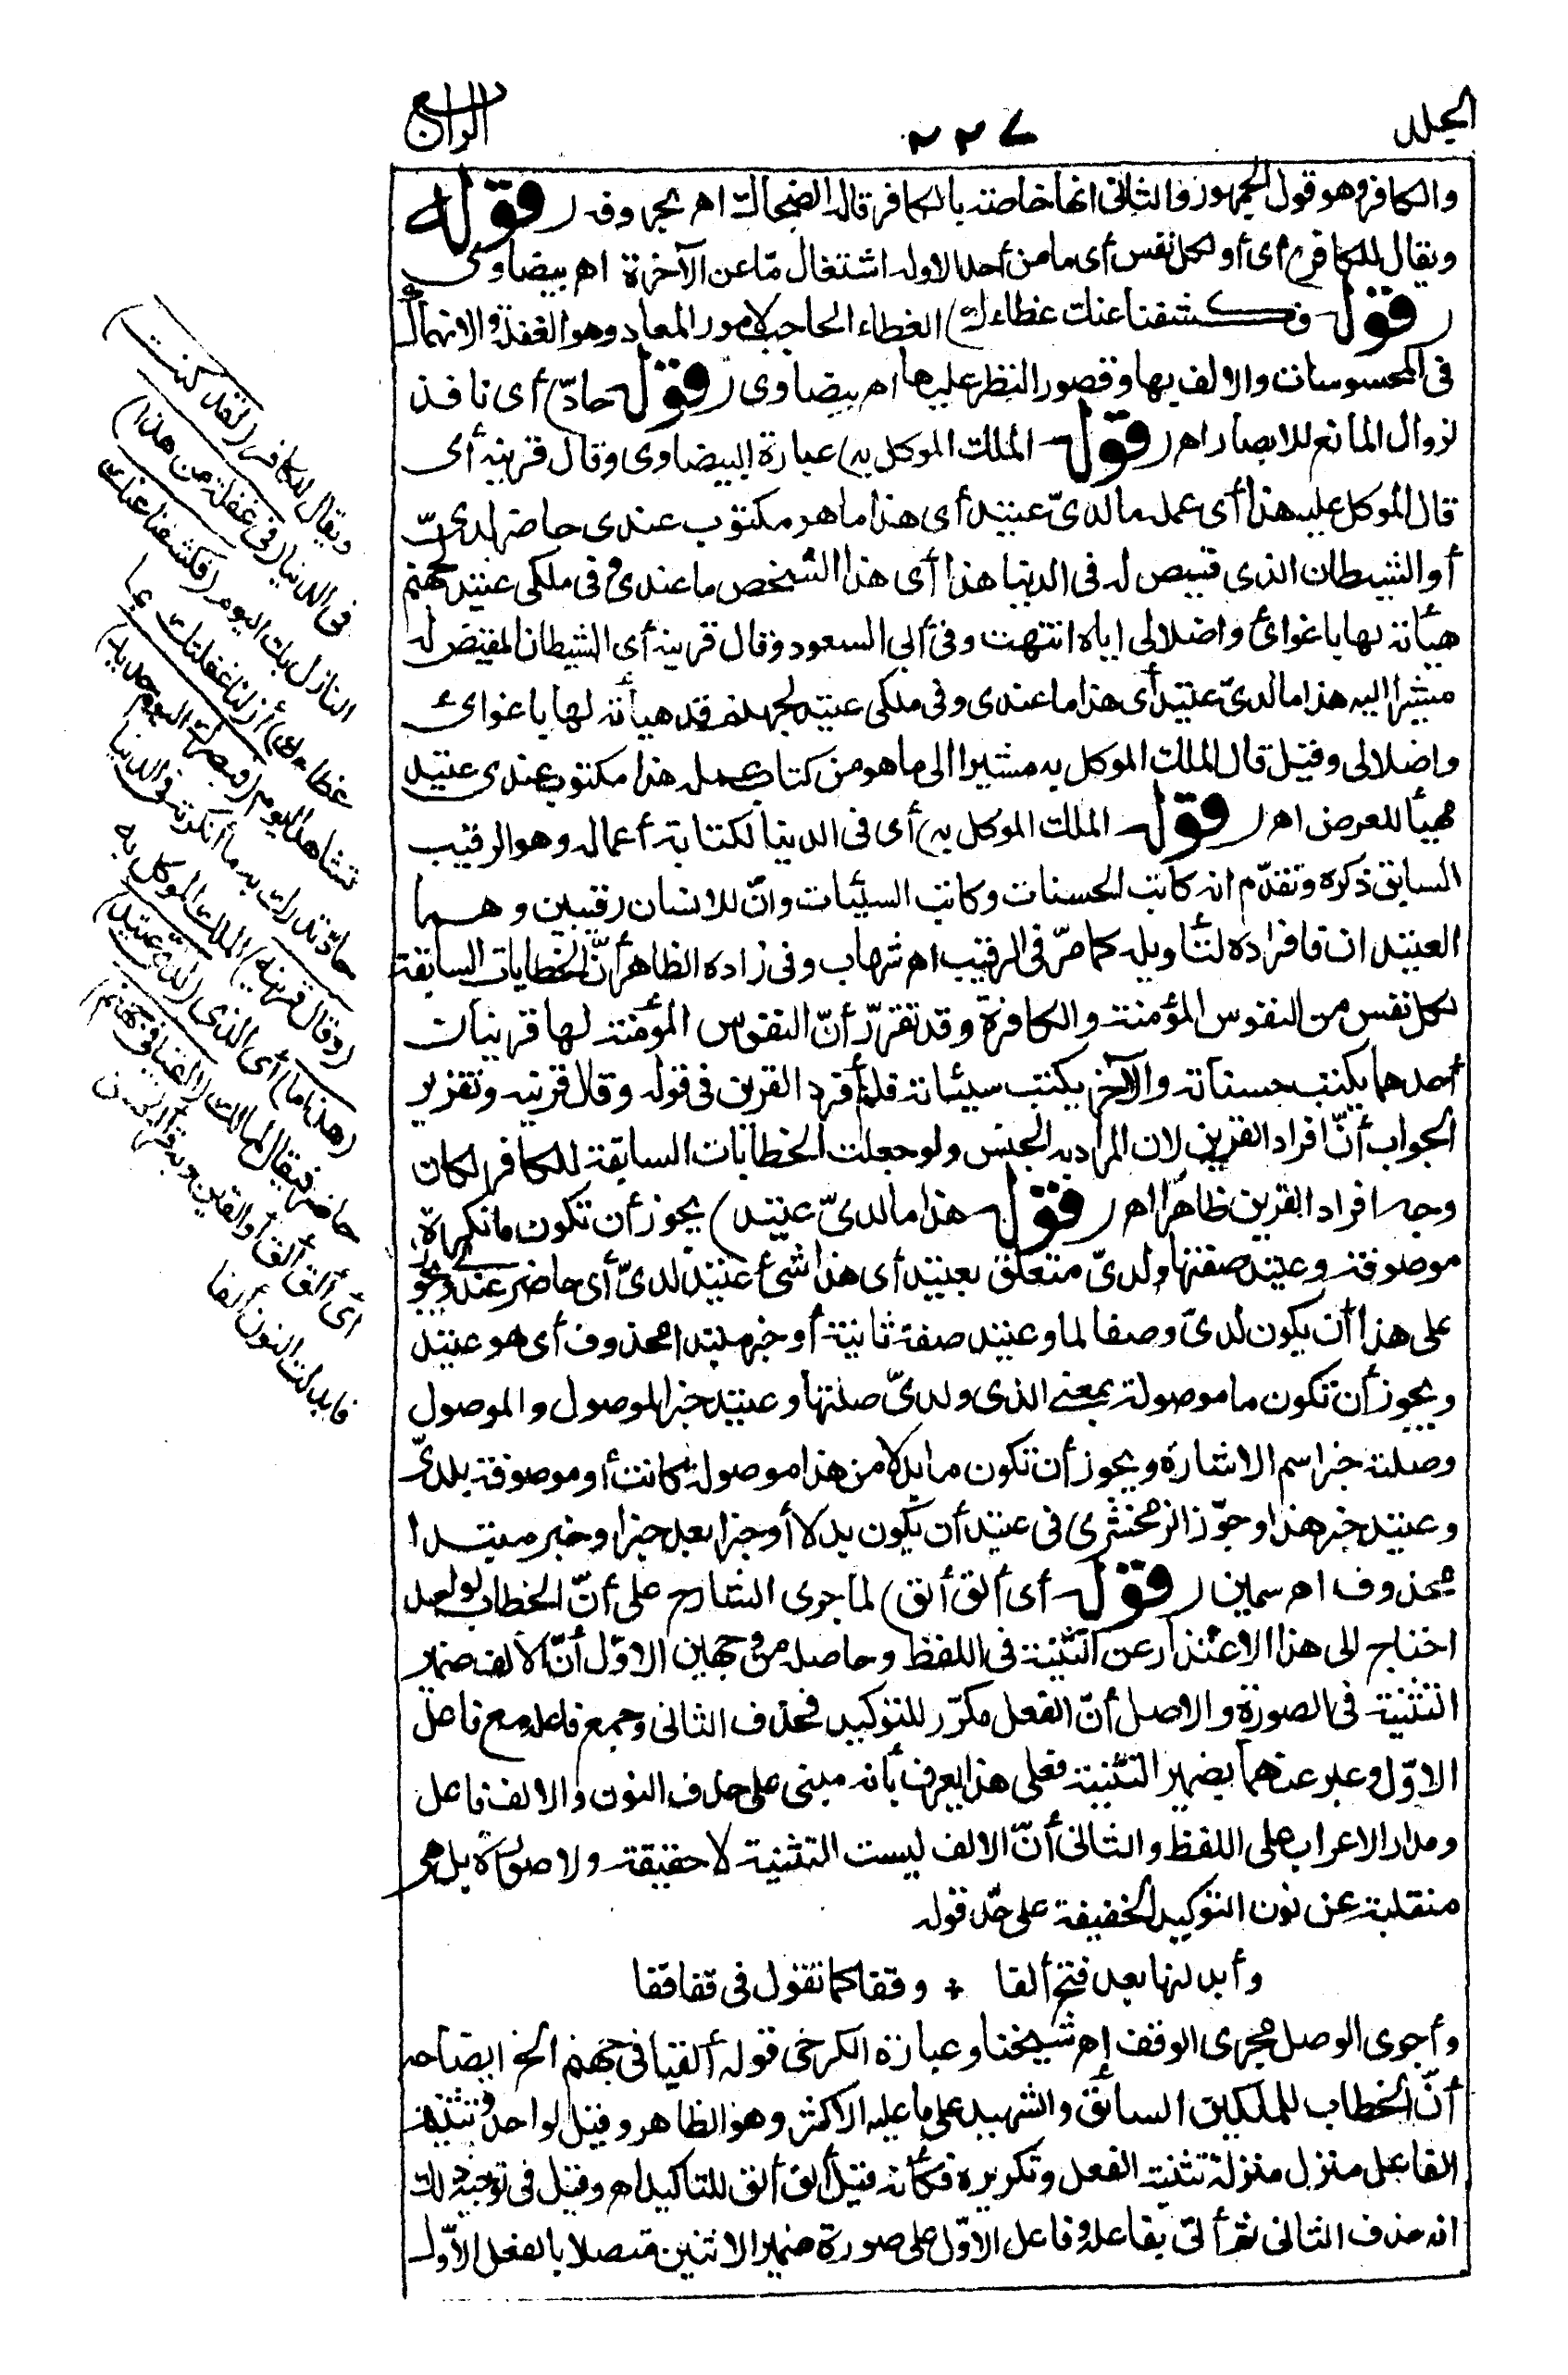 المجلد
٢٢٧
الرابع
والكافر وهو قول الجمهور والثانى انها خاصة بالكافر قاله الضحاك اهـ بحروفه (قوله
ويقال للكافر) أى أو لكل نفس أى ما من أحد الا وله اشتغال مّا عن الآخرة اهـ بيضاوى
(قوله فكشفنا عنك غطاءك) الغطاء الحاجب لامور المعاد وهو الغفلة والانهماك
فى المحسوسات والالف بها وقصور النظر عليها اهـ بيضاوى (قوله حادّ) أى نافذ
لزوال المانع للابصار اهـ (قوله الملك الموكل به) عبارة البيضاوى وقال قرينه أى
قال الموكل عليه هذا أى عمله ما لدىّ عتيد أى هذا ما هو مكتوب عندى حاضر لدىّ
أو الشيطان الذى قيض له فى الدنيا هذا أى هذا الشخص ما عندى وفى ملكى عتيد لجهنم
هيأته بها باغوائ واضلالى اياه انتهت وفى أبى السعود وقال قرينه أى الشيطان المقيض له
مشيرا اليه هذا ما لدىّ عتيد أى هذا ما عندى وفى ملكى عتيد لجهنم قد هيأته لها باغوائ
واضلالى وقيل قال الملك الموكل به مشيرا الى ما هو من كتاب عمله هذا مكتوب عندى عتيد
مهيأ للعرض اهـ (قوله الملك الموكل به) أى فى الدنيا لكتابة أعماله وهو الرقيب
السابق ذكره وتقدّم انه كاتب الحسنات وكاتب السيئات وانّ للانسان رقيبين وهما
العتيد ان فافراده لتأويله كما مرّ فى الرقيب اهـ شهاب وفى زاده الظاهر أنّ الخطابات السابقة
لكل نفس من النفوس المؤمنة والكافرة وقد تقرّر أنّ النفوس المؤمنة لها قرينان
أحدهما يكتب حسناته والآخر يكتب سيئاته فلم أفرد القرين فى قوله وقال قرينه وتقرير
الجواب أنّ افراد القرين لان المراد به الجنس ولو جعلت الخطابات السابقة للكافر لكان
وجه افراد القرين ظاهرا اهـ (قوله هذا ما لدىّ عتيد) يجوز أن تكون ما نكرة
موصوفة وعتيد صفتها ولدىّ متعلق بعتيد أى هذا شئ عتيد لدىّ أى حاضر عندى ويجوز
على هذا أن يكون لدىّ وصفا لما وعتيد صفة ثانية أو خبر مبتدا محذوف أى هو عتيد
ويجوز أن تكون ما موصولة بمعنى الذى ولدىّ صلتها وعتيد خبر الموصول والموصول
وصلته خبر اسم الاشارة ويجوز أن تكون ما بدلا من هذا موصولة كانت أو موصوفة بلدىّ
وعتيد خبر هذا وجوّز الزمخشرى فى عتيد أن يكون بدلا أو خبرا بعد خبر أو خبر مبتدا
محذوف اهـ سمين (قوله أى ألق ألق) لما جرى الشارح على أنّ الخطاب لواحد
احتاج الى هذا الاعتذار عن التثنية فى اللفظ وحاصله من وجهين الاوّل أنّ الالف ضمير
التثنية فى الصورة والاصل أنّ الفعل مكرّر للتوكيد فحذف الثانى وجمع فاعله مع فاعل
الاوّل وعبر عنهما بضمير التثنية فعلى هذا يعرف بأنه مبنى على حذف النون والالف فاعل
ومدار الاعراب على اللفظ والثانى أنّ الالف ليست للتثنية لا حقيقة ولا صورة بل هى
منقلبة عن نون التوكيد الخفيفة على حدّ قوله
وأبدلنها بعد فتح ألفا + وقفا كما تقول فى قفن قفا
وأجرى الوصل مجرى الوقف اهـ شيخنا وعبارة الكرخى قوله ألقيا فى جهنم الخ ايضاحه
أنّ الخطاب للملكين السائق والشهيد على ما عليه الاكثر وهو الظاهر وقيل لواحد وتثنية
الفاعل منزل منزلة تثنية الفعل وتكريره فكأنه قيل ألق ألق للتاكيد اهـ وقيل فى توجيه ذلك
انه حذف الثانى ثم أتى بفاعله وفاعل الاوّل على صورة ضمير الاثنين متصلا بالفعل الاوّل
ويقال للكافر (لقد كنت)
فى الدنيا (فى غفلة من هذا)
النازل بك اليوم (فكشفنا عنك
غطاءك) أزلنا غفلتك بما
تشاهده اليوم (فبصرك اليوم حديد)
حادّ تدرك به ما أنكرته فى الدنيا
(وقال قرينه) الملك الموكل به
(هذا ما) أى الذى (لدىّ عتيد)
حاضر فيقال لمالك (ألقيا فى جهنم)
أى ألق ألق أو ألقين وبه قرأ الحسن
فابدلت النون ألفا